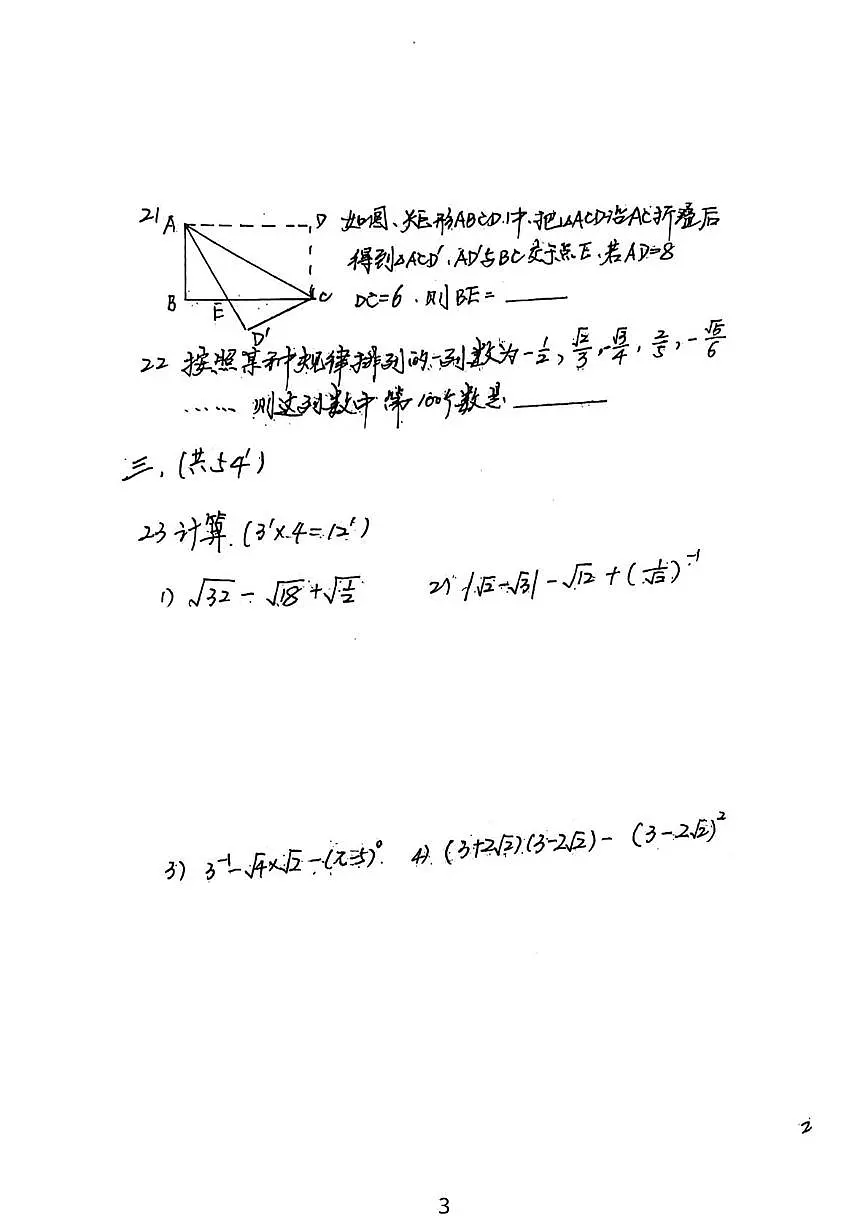 21 A D 如图、矩形ABCD中、把△ACD沿AC折叠后
得到△ACD′、AD′与BC交于点E、若AD=8
B E C DC=6、则BE= ______
D′
22 按照某种规律排列的一列数为 -1/2, √2/3, -√3/4, 2/5, -√5/6
…… 则这列数中第100个数是 ______
三、(共54′)
23 计算. (3′×4=12′)
1) √32 - √18 + √(1/2) 2) |√2-√3| - √12 + (1/√2)^-1
3) 3^-1 - √4×√2 - (π-5)^0 4) (3+2√2)(3-2√2) - (3-2√2)^2
2
3